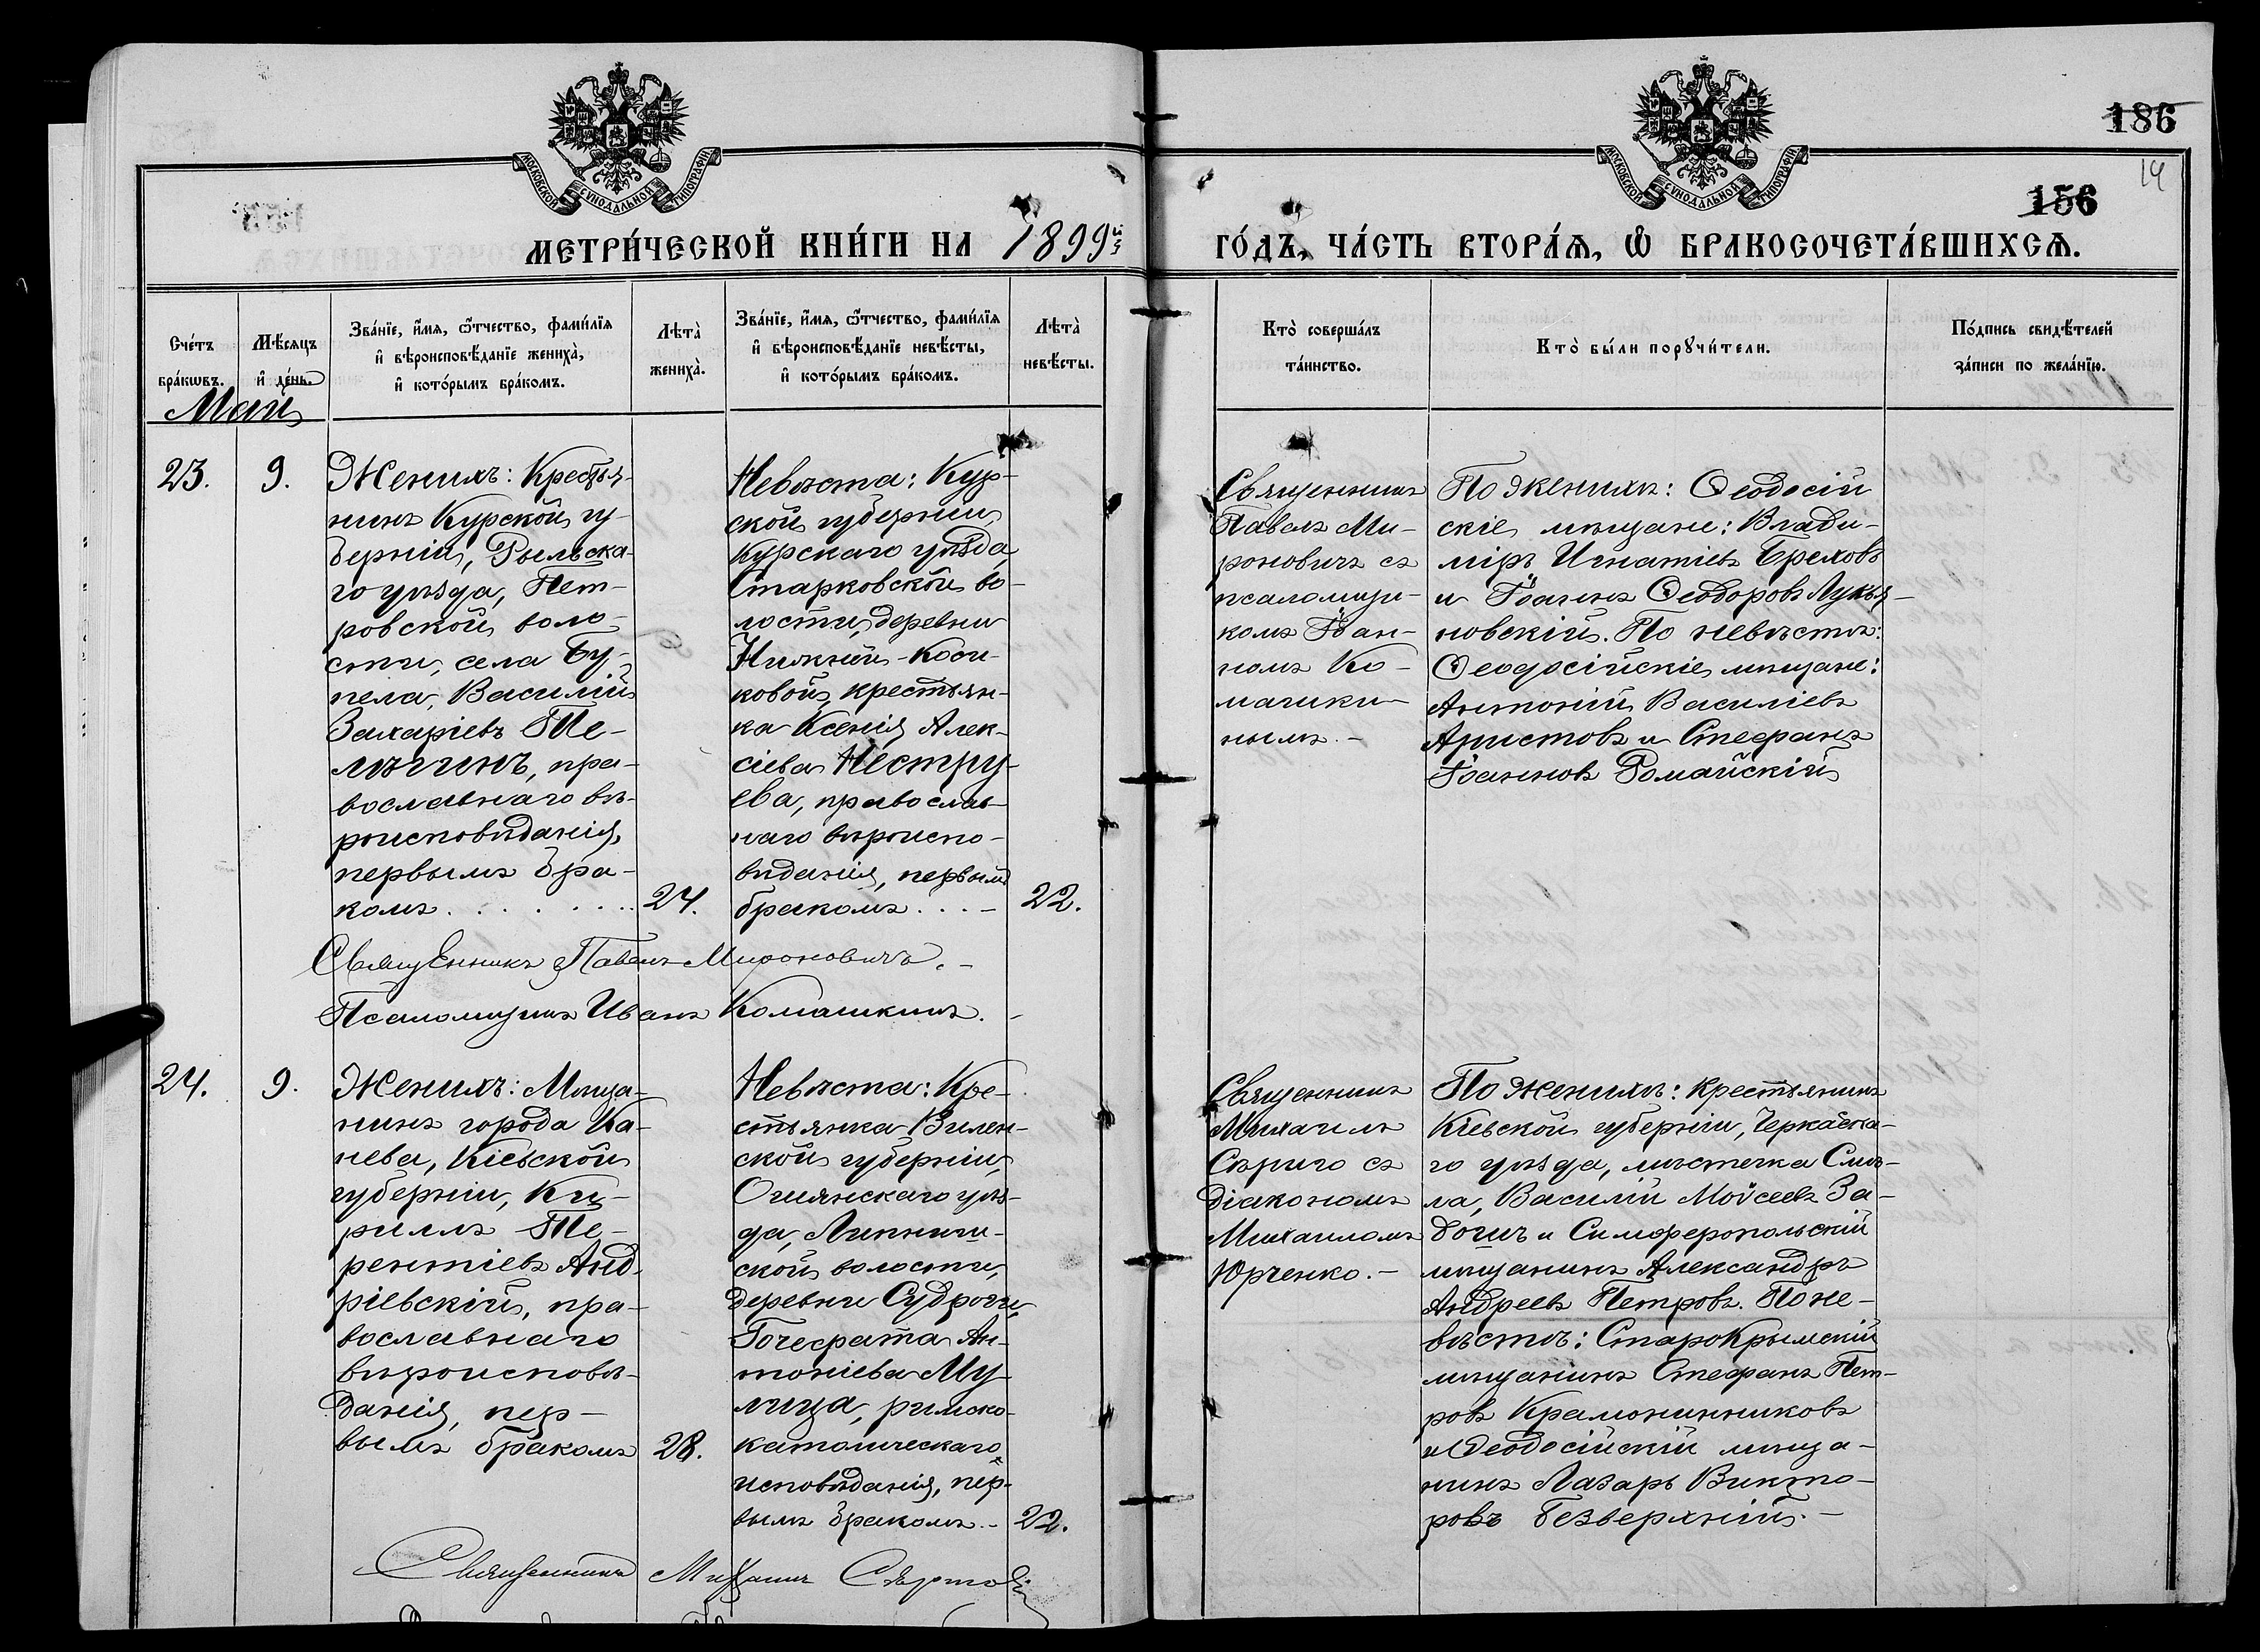 186
14
156
МОСКОВСКОЙ СУНОДАЛЬНОЙ ТИПОГРАФІИ
МОСКОВСКОЙ СУНОДАЛЬНОЙ ТИПОГРАФІИ
МЕТРИ́ЧЕСКОЙ КНИ́ГИ НА 1899й
ГО́ДЪ, ЧА́СТЬ ВТОРА́Ѧ, Ѽ БРАКОСОЧЕТА́ВШИХСѦ.
Сче́тъ
бра́кѡвъ.
Мѣ́сяцъ
и҆ де́нь.
Зва́нїе, и҆́мя, ѻ҆́тчество, фами́лїя
и҆ вѣроисповѣ́данїе жениха̀,
и҆ кото́рымъ бра́комъ.
Лѣта̀
жениха̀.
Зва́нїе, и҆́мя, ѻ҆́тчество, фами́лїя
и҆ вѣроисповѣ́данїе невѣ́сты,
и҆ кото́рымъ бра́комъ.
Лѣта̀
невѣ́сты.
Кто̀ соверша́лъ
та́инство.
Кто̀ бы́ли порꙋчи́тели.
По́дпись свидѣ́телей
за́писи по жела́нїю.
Май
23.
9.
Женихъ: Крестья-
нинъ Курской гу-
берніи, Рыльска-
го уѣзда, Пет-
ровской воло-
сти, села Бу-
пела, Василій
Захаріевъ Те-
лѣгинъ, пра-
вославнаго вѣ-
роисповѣданія,
первымъ бра-
комъ . . . . . . .
24.
Невѣста: Кур-
ской губерніи,
Курскаго уѣзда,
Старковской во-
лости, деревни
Нижней-Коси-
ковой, крестьян-
ка Ксенія Алек-
сіева Нестру-
ева, православ-
наго вѣроиспо-
вѣданія, первымъ
бракомъ . . . -
22.
Священникъ
Павелъ Ми-
роновичъ съ
псаломщи-
комъ Іоан-
номъ Ко-
машки-
нымъ. -
По женихѣ: Ѳеодосій
скіе мѣщане: Влади-
міръ Игнатіевъ Бреховъ
и Іоаннъ Ѳеодоровъ Лукья-
новскій. По невѣстѣ:
Ѳеодосійскіе мѣщане:
Антоній Василіевъ
Аристовъ и Стефанъ
Іоанновъ Романскій
Священникъ Павелъ Мироновичъ. -
Псаломщикъ Иванъ Комашкинъ. -
24.
9.
Женихъ: Мѣща-
нинъ города Ка-
нева, Кіевской
губерніи, Ки-
риллъ Те-
рентіевъ Анд-
ріевскій, пра-
вославнаго
вѣроисповѣ-
данія, пер-
вымъ бракомъ
28.
Невѣста: Кре-
стьянка Вилен-
ской губерніи,
Ошмянскаго уѣз-
да, Липниш-
ской волости,
деревни Судроги,
Гонефата Ан-
тоніева Му-
лица, римско-
католическаго
исповѣданія, пер-
вымъ бракомъ. -
22.
Священникъ
Михаилъ
Сѣриго съ
діакономъ
Михаиломъ
Юрченко. -
По женихѣ: крестьянинъ
Кіевской губерніи, Черкаска-
го уѣзда, мѣстечка Смѣ-
ла, Василій Моѵсеевъ За-
догинъ и Симферопольскій
мѣщанинъ Александръ
Андреевъ Петровъ. По не-
вѣстѣ: СтароКрымскій
мѣщанинъ Стефанъ Пет-
ровъ Крамонинниковъ
и Ѳеодосійскій мѣща-
нинъ Лазарь Викто-
ровъ Безверхній. -
Священникъ Михаилъ